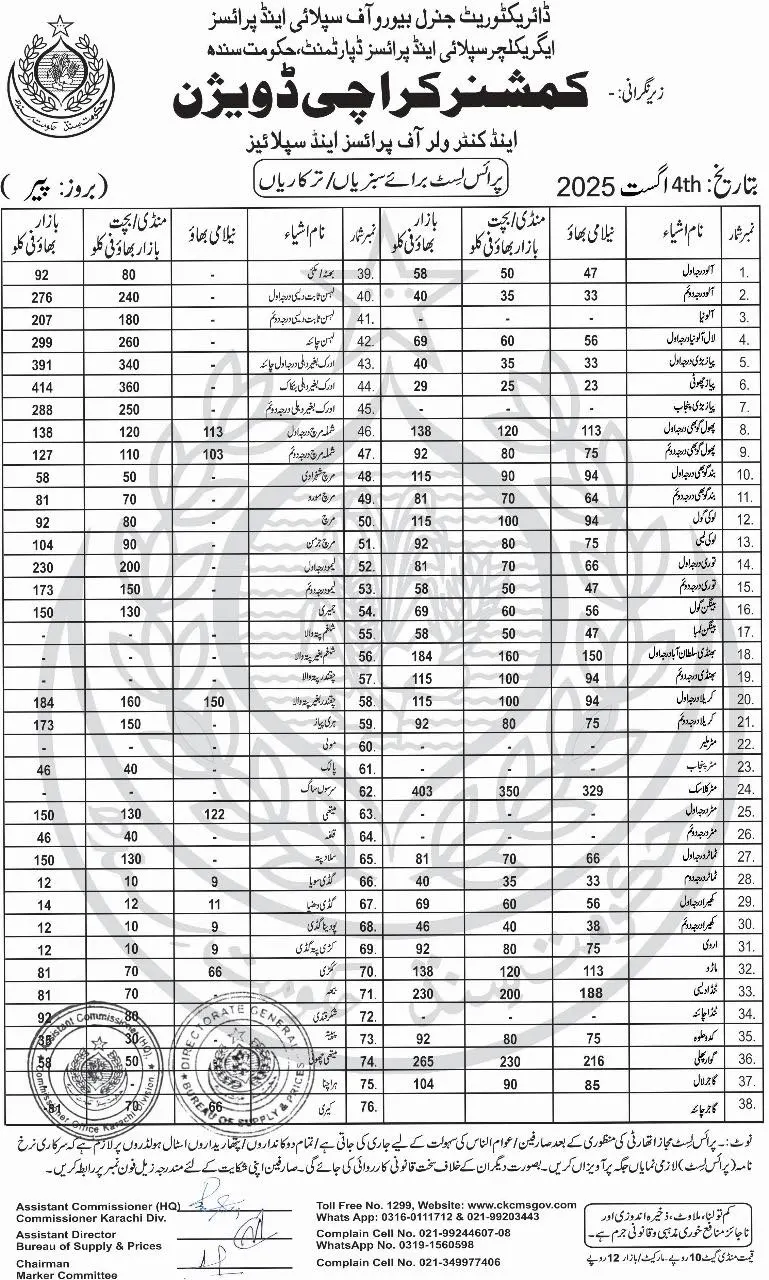 ڈائریکٹوریٹ جنرل بیورو آف سپلائی اینڈ پرائسز
ایگریکلچر سپلائی اینڈ پرائسز ڈپارٹمنٹ، حکومت سندھ
زیر نگرانی: -
کمشنر کراچی ڈویژن
اینڈ کنٹرولر آف پرائسز اینڈ سپلائیز
تاریخ: 4th اگست 2025 پرائس لسٹ برائے سبزیاں/ترکاریاں (بروز: پیر)
نمبر شمار نام اشیاء نیلامی بھاؤ منڈی/بچت بازار بھاؤ فی کلو بازار بھاؤ فی کلو نمبر شمار نام اشیاء نیلامی بھاؤ منڈی/بچت بازار بھاؤ فی کلو بازار بھاؤ فی کلو
1. آلو درجہ اول 47 50 58 39. بھٹہ / مکئی - 80 92
2. آلو درجہ دوئم 33 35 40 40. لہسن ثابت دیسی درجہ اول - 240 276
3. آلو نیا - - - 41. لہسن ثابت دیسی درجہ دوئم - 180 207
4. لال آلو نیا درجہ اول 56 60 69 42. لہسن چائنہ - 260 299
5. پیاز بڑی درجہ اول 33 35 40 43. ادرک بغیر دھلی درجہ اول چائنہ - 340 391
6. پیاز چھوٹی 23 25 29 44. ادرک بغیر دھلی بنکاک - 360 414
7. پیاز بڑی پنجاب - - - 45. ادرک بغیر دھلی درجہ دوئم - 250 288
8. پھول گوبھی درجہ اول 113 120 138 46. شملہ مرچ درجہ اول 113 120 138
9. پھول گوبھی درجہ دوئم 75 80 92 47. شملہ مرچ درجہ دوئم 103 110 127
10. بند گوبھی درجہ اول 94 90 115 48. مرچ شہزادی - 50 58
11. بند گوبھی درجہ دوئم 64 70 81 49. مرچ مورو - 70 81
12. لوکی گول 94 100 115 50. مرچ - 80 92
13. لوکی لمبی 75 80 92 51. مرچ جرمن - 90 104
14. توری درجہ اول 66 70 81 52. لیمو درجہ اول - 200 230
15. توری درجہ دوئم 47 50 58 53. لیمو درجہ دوئم - 150 173
16. بینگن گول 56 60 69 54. جمیری - 130 150
17. بینگن لمبا 47 50 58 55. شلغم پتہ والا - - -
18. بھنڈی سلطان آباد درجہ اول 150 160 184 56. شلغم بغیر پتہ والا - - -
19. بھنڈی درجہ دوئم 94 100 115 57. چقندر پتہ والا - - -
20. کریلا درجہ اول 94 100 115 58. چقندر بغیر پتہ والا 150 160 184
21. کریلا درجہ دوئم 75 80 92 59. ہری پیاز - 150 173
22. مٹر ملیر - - - 60. مولی - - -
23. مٹر پنجاب - - - 61. پالک - 40 46
24. مٹر کلاسک 329 350 403 62. سرسوں ساگ - - -
25. مٹر درجہ اول - - - 63. میتھی 122 130 150
26. مٹر درجہ دوئم - - - 64. قلفہ - 40 46
27. ٹماٹر درجہ اول 66 70 81 65. سلاد پتہ - 130 150
28. ٹماٹر درجہ دوم 33 35 40 66. گڈی سویا 9 10 12
29. کھیرا درجہ اول 56 60 69 67. گڈی دھنیا 11 12 14
30. کھیرا درجہ دوئم 38 40 46 68. پودینا گڈی 9 10 12
31. اروی 75 80 92 69. کڑی پتہ گڈی 9 10 12
32. ماڑو 113 120 138 70. ککڑی 66 70 81
33. ٹنڈا دیسی 188 200 230 71. - 70 81
34. ٹنڈا چائنہ - - - 72. شکرقندی 80 92
35. کدو حلوہ 75 80 92 73. پپیتہ 30 35
36. گوار پھلی 216 230 265 74. میتھی چھوٹی 50 58
37. گاجر لال 85 90 104 75. ہرا چنا
38. گاجر چائنہ - - - 76. کیری 66 70 81
نوٹ:۔ پرائس لسٹ مجاز اتھارٹی کی منظوری کے بعد صارفین/عوام الناس کی سہولت کے لیے جاری کی جاتی ہے/تمام دوکانداروں/پتھاریداروں اسٹال ہولڈروں پر لازم ہے کہ سرکاری نرخ
نامہ (پرائس لسٹ) لازمی نمایاں جگہ پر آویزاں کریں۔ بصورت دیگر ان کے خلاف سخت قانونی کارروائی کی جائے گی۔ صارفین اپنی شکایت کے لئے مندرجہ زیل فون نمبر پر رابطہ کریں۔
Assistant Commissioner (HQ)
Commissioner Karachi Div.
Assistant Director
Bureau of Supply & Prices
Chairman
Marker Committee
Toll Free No. 1299, Website: www.ckcmsgov.com
Whats App: 0316-0111712 & 021-99203443
Complain Cell No. 021-99244607-08
WhatsApp No. 0319-1560598
Complain Cell No. 021-349977406
کم تولنا، ملاوٹ، ذخیرہ اندوزی اور
ناجائز منافع خوری مذہبی و قانونی جرم ہے۔
قیمت منڈی گیٹ 10 روپے - مارکیٹ/بازار 12 روپے
Assistant Commissioner (HQ).
Commissioner Office Karachi Division
DIRECTORATE GENERAL
BUREAU OF SUPPLY & PRICES
حکومت سندھ